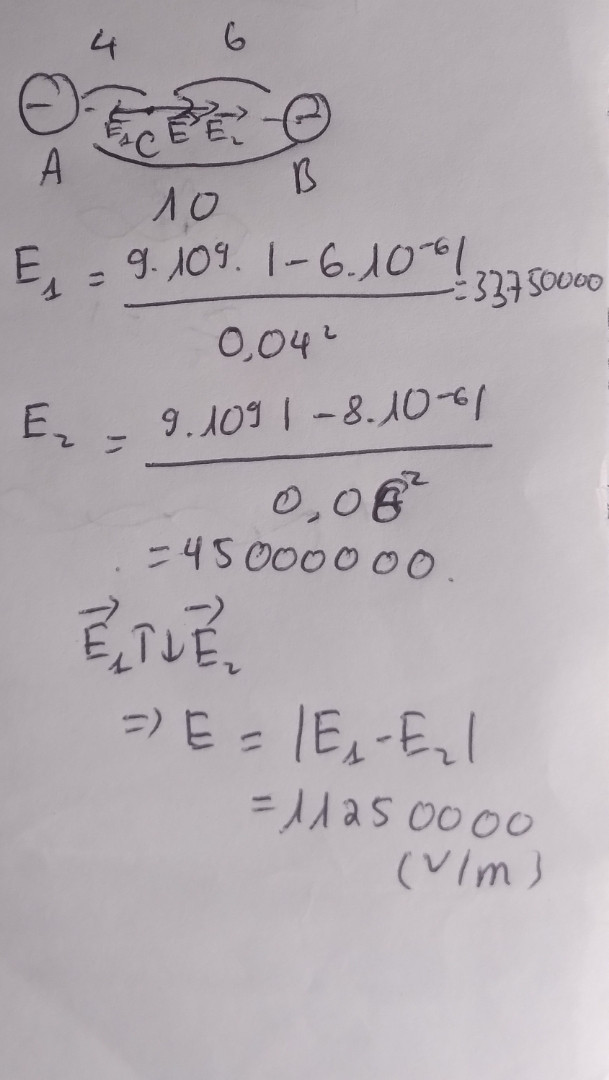 4 6
- -
E₁ C E E₂
A B
10
E₁ = 9.10⁹. |-6.10⁻⁶| / 0,04² = 33750000
E₂ = 9.10⁹ |-8.10⁻⁶| / 0,0
= 45000000.
E₁↑↓E₂
=> E = |E₁-E₂|
= 11250000
(V/m)